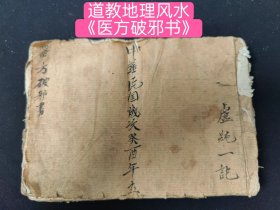 道教地理风水
《医方破邪书》
一記
中華民國歲次癸酉年
方破邪書